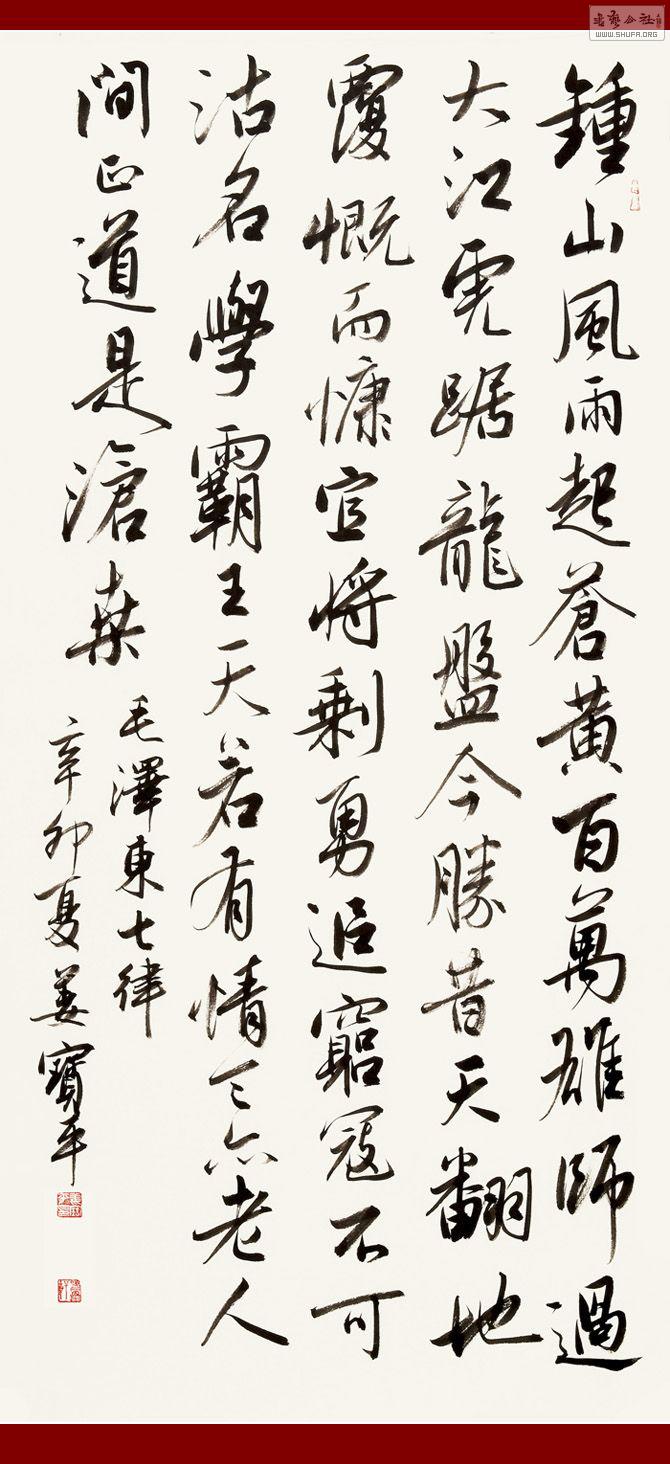 鍾山風雨起蒼黃百萬雄師過
大江虎踞龍盤今勝昔天翻地
覆慨而慷宜將剩勇追窮寇不可
沽名學霸王天若有情天亦老人
間正道是滄桑
毛澤東七律
辛卯夏姜寶平
書藝公社
WWW.SHUFA.ORG